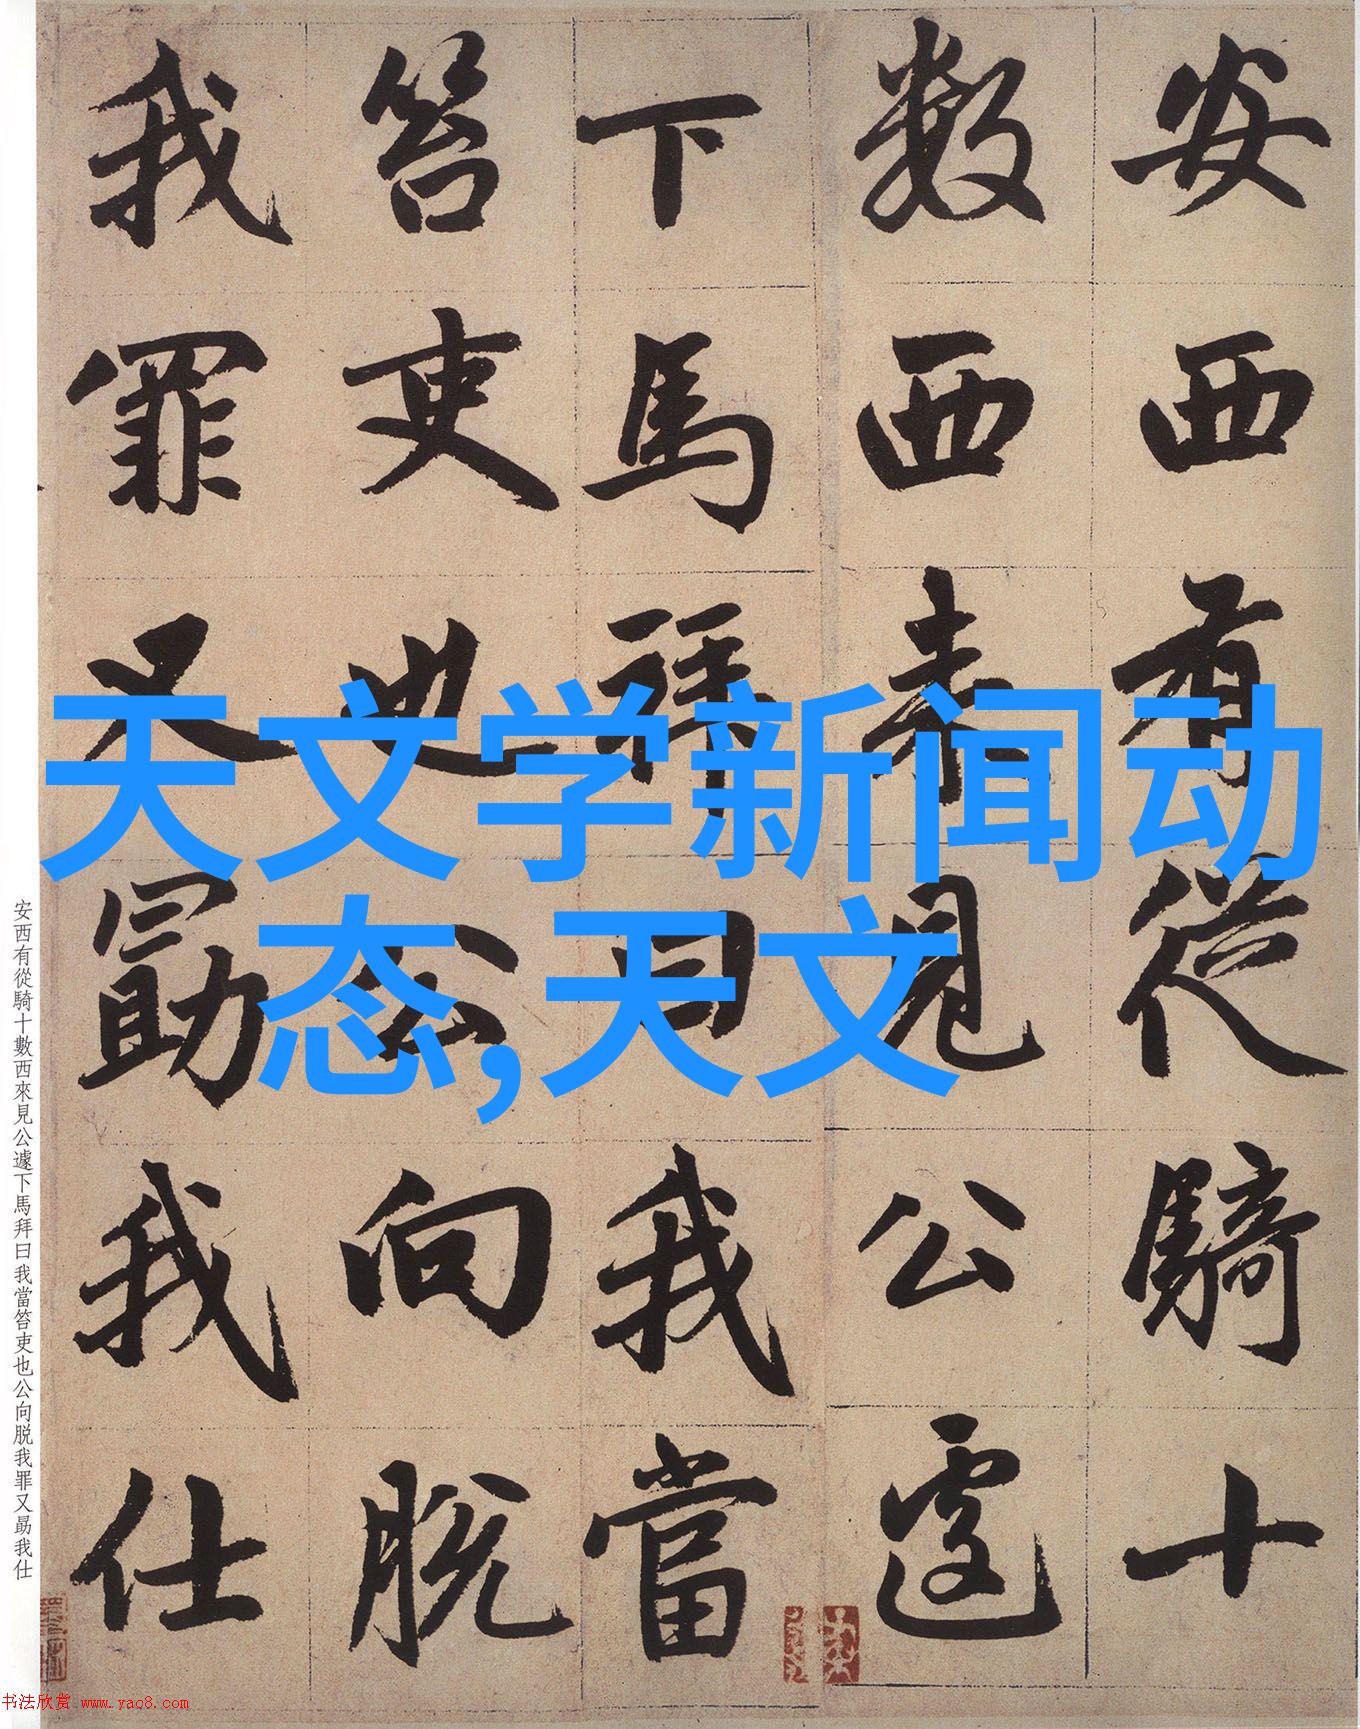 安西有從騎十
數西來見公遽
下馬拜曰我當
笞吏也公向脱
我罪又勗我仕
天文学新闻动
态,天文
安西有從騎十數西來見公遽下馬拜曰我當笞吏也公向脱我罪又勗我仕
书法欣赏 www.yac8.com